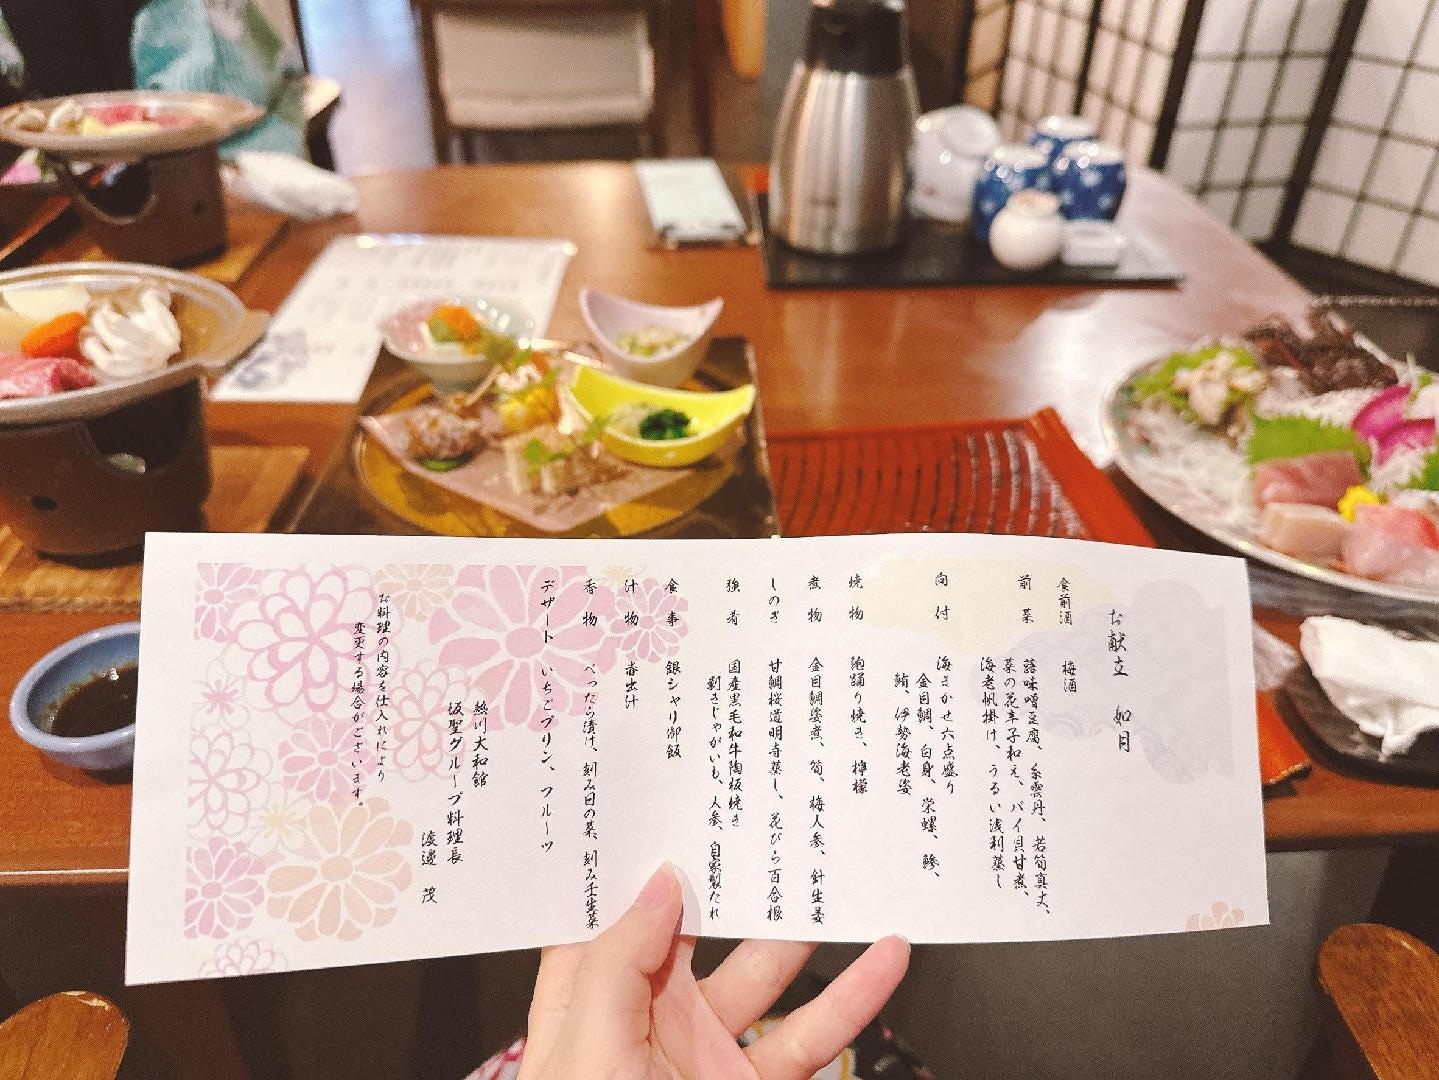 お献立 如月
食前酒 梅酒
前菜 蕗味噌豆腐、糸雲丹、若筍真丈、
菜の花辛子和え、バイ貝甘煮、
海老帆掛け、うるい浅利蒸し
向付 海さかせ六点盛り
金目鯛、白身、栄螺、鯵、
鮪、伊勢海老姿
焼物 鮑踊り焼き、檸檬
煮物 金目鯛姿煮、筍、梅人参、針生姜
しのぎ 甘鯛桜道明寺蒸し、花びら百合根
強肴 国産黒毛和牛陶板焼き
剥きじゃがいも、人参、自家製たれ
食事 銀シャリ御飯
汁物 春出汁
香物 べったら漬け、刻み日の菜、刻み壬生菜
デザート いちごプリン、フルーツ
熱川大和館
坂聖グループ料理長
渡邉 茂
お料理の内容を仕入れにより
変更する場合がございます。